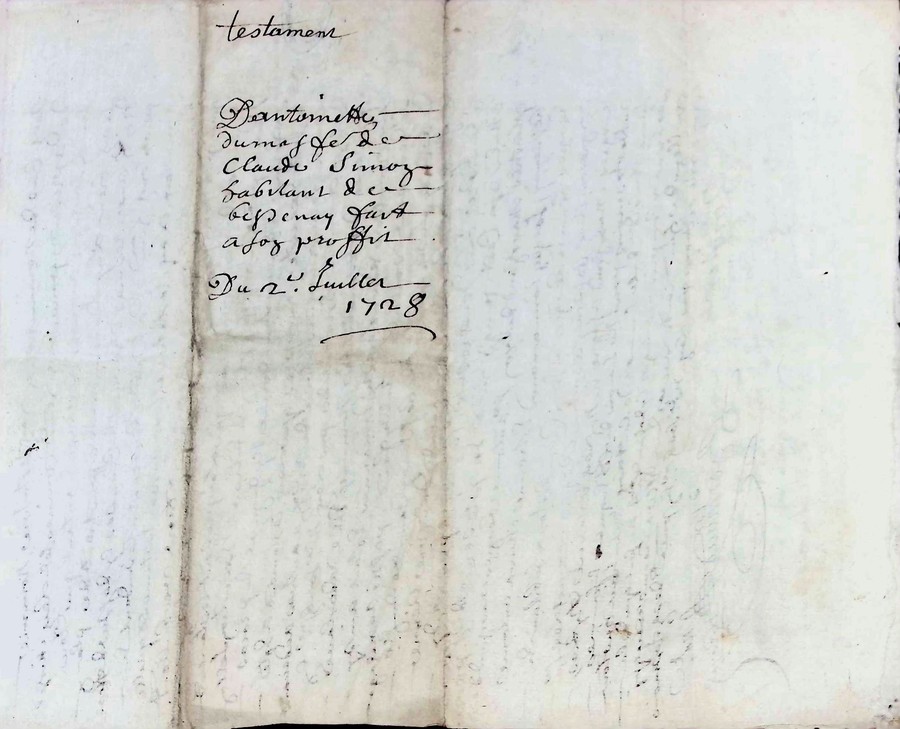 testament
Dantoinette
dumas fe de
Claude Simoz
habitant de
bessenay fait
a soz proffit
Du 2e. Juillet
1728